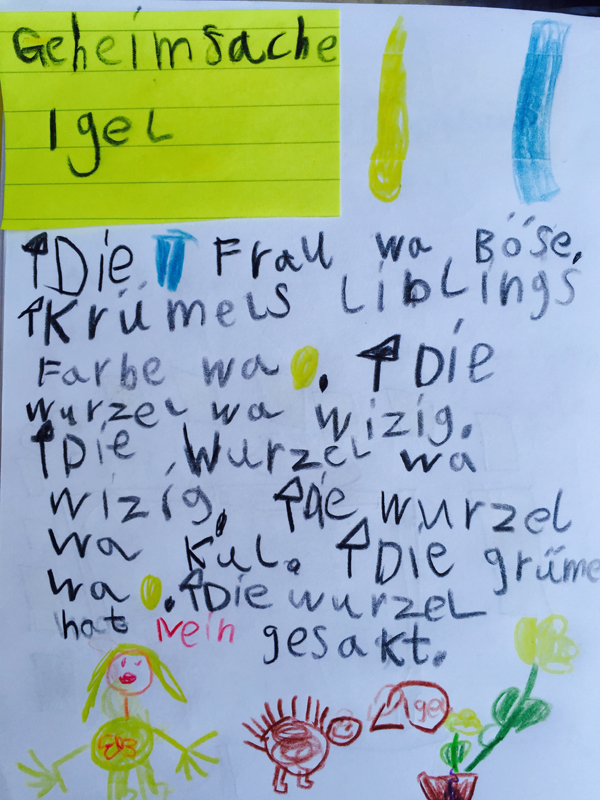 Geheimsache
Igel
Die Frau wa Böse,
Krümels Liblings
Farbe wa . Die
wurzel wa wizig.
Die Wurzel wa
wizig, Die wurzel
wa Kül. Die grüme
wa . Die wurzel
hat Nein gesakt.
Igel